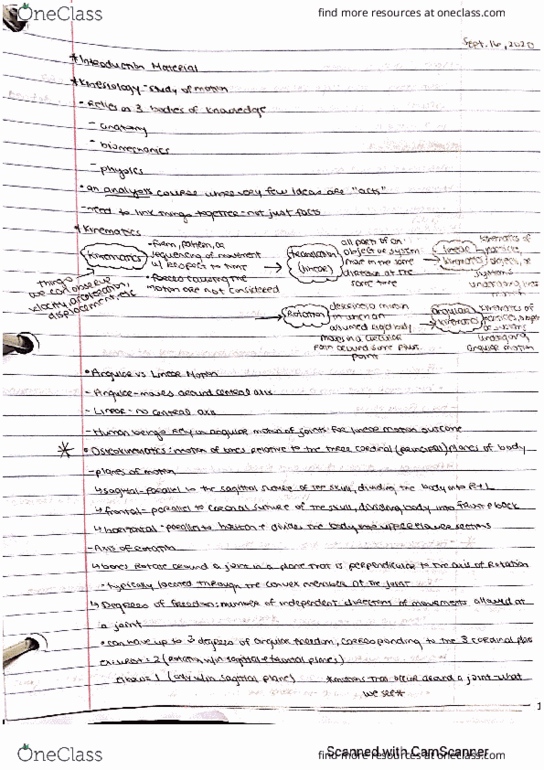 OneClass
find more resources at oneclass.com
Sept. 16, 2020
* Introduction Material
* Kinesiology - study of motion
- Relies on 3 bodies of knowledge
- anatomy
- biomechanics
- physics
• an analysis course where very few ideas are "acts"
- tend to link things together - not just facts
* Kinematics
Kinematics
- Form, pattern, or sequencing of movement w/ respect to time
• Forces causing the motion are not considered
things we can observe
velocity, acceleration, displacement, etc
Translation (linear)
all parts of an object or system move in the same distance at the same time
linear kinematics
kinematics of particles, objects, or systems undergoing linear
Rotation
describes motion in which an assumed rigid body moves in a circular path around some pivot point
angular kinematics
kinematics of particles, objects or systems undergoing angular motion
• Angular vs Linear Motion
- Angular - moves around central axis
- Linear - no central axis
- Human beings rely on angular motion of joints for linear motion outcome
* • Osteokinematics: motion of bones relative to the three cardinal (principal) planes of body
- planes of motion
↳ sagittal - parallel to the sagittal suture of the skull, dividing the body into R + L
↳ frontal - parallel to coronal suture of the skull, dividing body into front + back
↳ horizontal - parallel to horizon + divides the body into upper + lower sections
- Axis of Rotation
↳ bones rotate around a joint in a plane that is perpendicular to the axis of rotation
• typically located through the convex member of the joint
↳ Degrees of freedom: number of independent directions of movements allowed at
a joint
• can have up to 3 degrees of angular freedom, corresponding to the 3 cardinal planes
ex: wrist = 2 (rotation w/in sagittal + frontal planes)
elbow = 1 (only w/in sagittal plane)
* motions that occur around a joint - what we see *
1
Scanned with CamScanner
OneClass
find more resources at oneclass.com